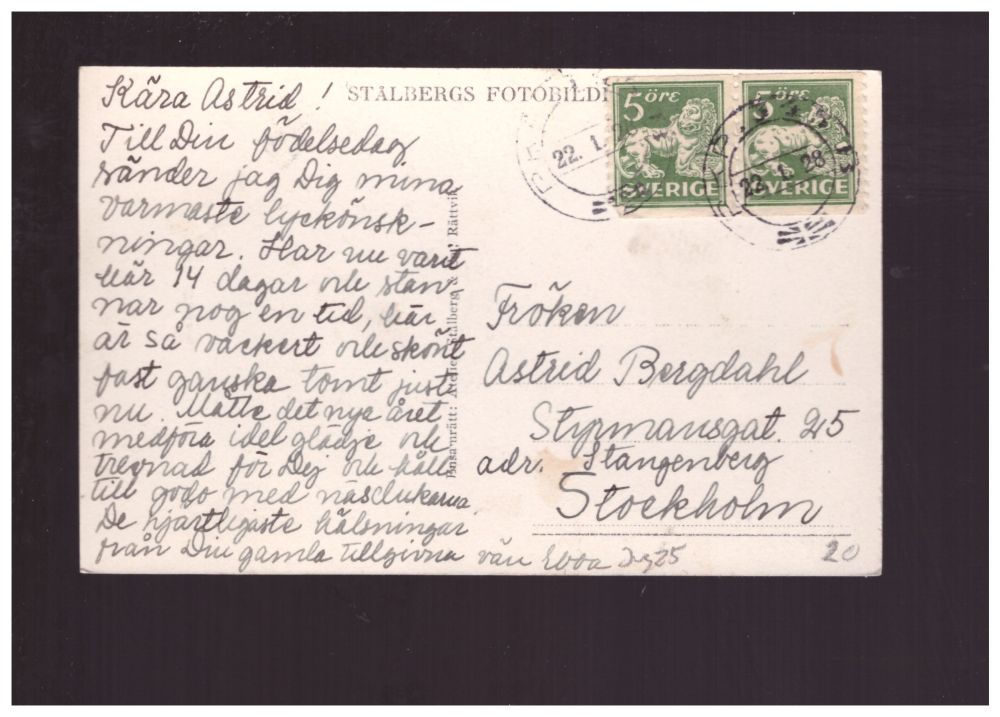 Kära Astrid !
Till Din födelsedag
sänder jag Dig mina
varmaste lyckönsk-
ningar. Har nu varit
här 14 dagar och stan-
nar nog en tid, här
är så vackert och skönt
fast ganska tomt just
nu. Måtte det nya året
medföra idel glädje och
trevnad för Dig och håll
till godo med näsdukarna
De hjärtligaste hälsningar
från Din gamla tillgivna vän Ebba
STÅLBERGS FOTOBILD
Ensamrätt: Ateljé Stålberg, Rättvik
5 öre
SVERIGE
22. 1.
5 öre
SVERIGE
22. 1. 28
Fröken
Astrid Bergdahl
Styrmansgat. 25
adr. Stangenberg
Stockholm
20